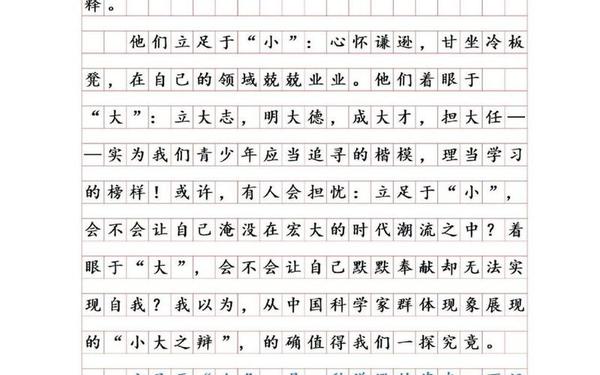 释。
他们立足于“小”：心怀谦逊，甘坐冷板
凳，在自己的领域兢兢业业。他们着眼于
“大”：立大志，明大德，成大才，担大任—
—实为我们青少年应当追寻的楷模，理当学习
的榜样！或许，有人会担忧：立足于“小”，
会不会让自己淹没在宏大的时代潮流之中？着
眼于“大”，会不会让自己默默奉献却无法实
现自我？我以为，从中国科学家群体现象展现
的“小大之辩”，的确值得我们一探究竟。